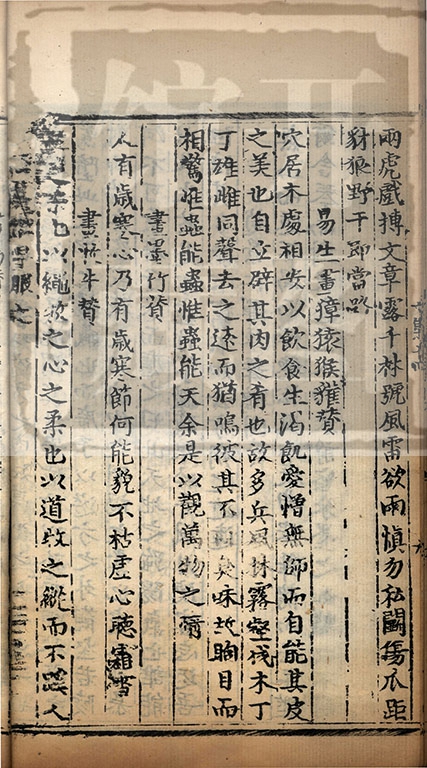 兩虎戲搏文章露千林號風雷欲雨慎勿私鬬傷爪距
豺狼野干即當路
易生畫獐猿猴獾贊
穴居木處相安以飲食生渴飢愛憎無師而自能其皮
之美也自立辟其肉之肴也故多兵風林霧壑伐木丁
丁雄雌同聲去之遠而猶鳴彼其不 臭味故眴目而
相驚惟蟲能蟲惟蟲能天余是以觀萬物之
畫墨竹贊
人有歲寒心乃有歲寒節何能貌不枯虛心聽霜雪
畫牧牛贊
之柔也以繩牧之心之柔也以道牧之縱而不蹊人
服之